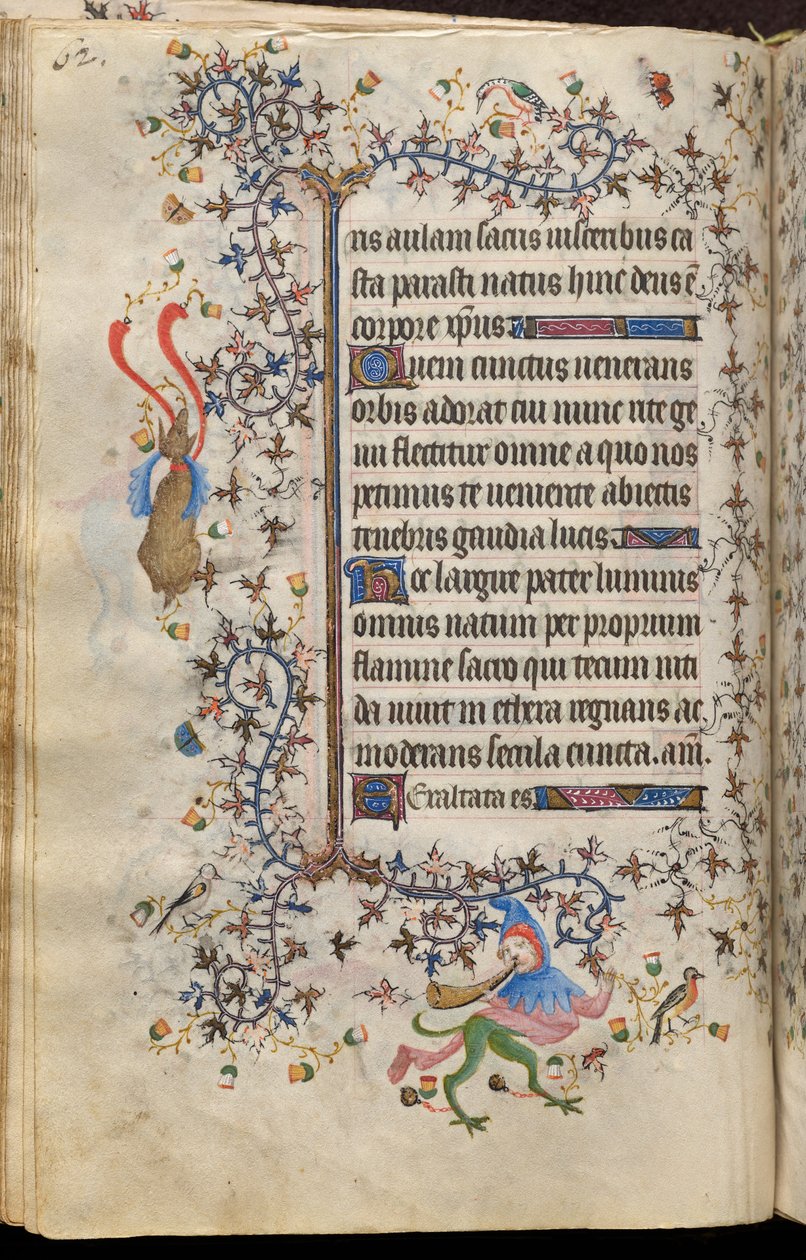 62.
ris aulam sacris uisceribus ca
sta parasti natus hinc deus ē
corpore xp̄us
Quem cunctus uenerans
orbis adorat cui nunc rite ge
nu flectitur omne a quo nos
petimus te ueniente abiectis
tenebris gaudia lucis
Hoc largire pater luminis
omnis natum per proprium
flamine sacro qui tecum niti
da uiuit in ethera regnans ac
moderans secula cuncta. am̄.
Exaltata es